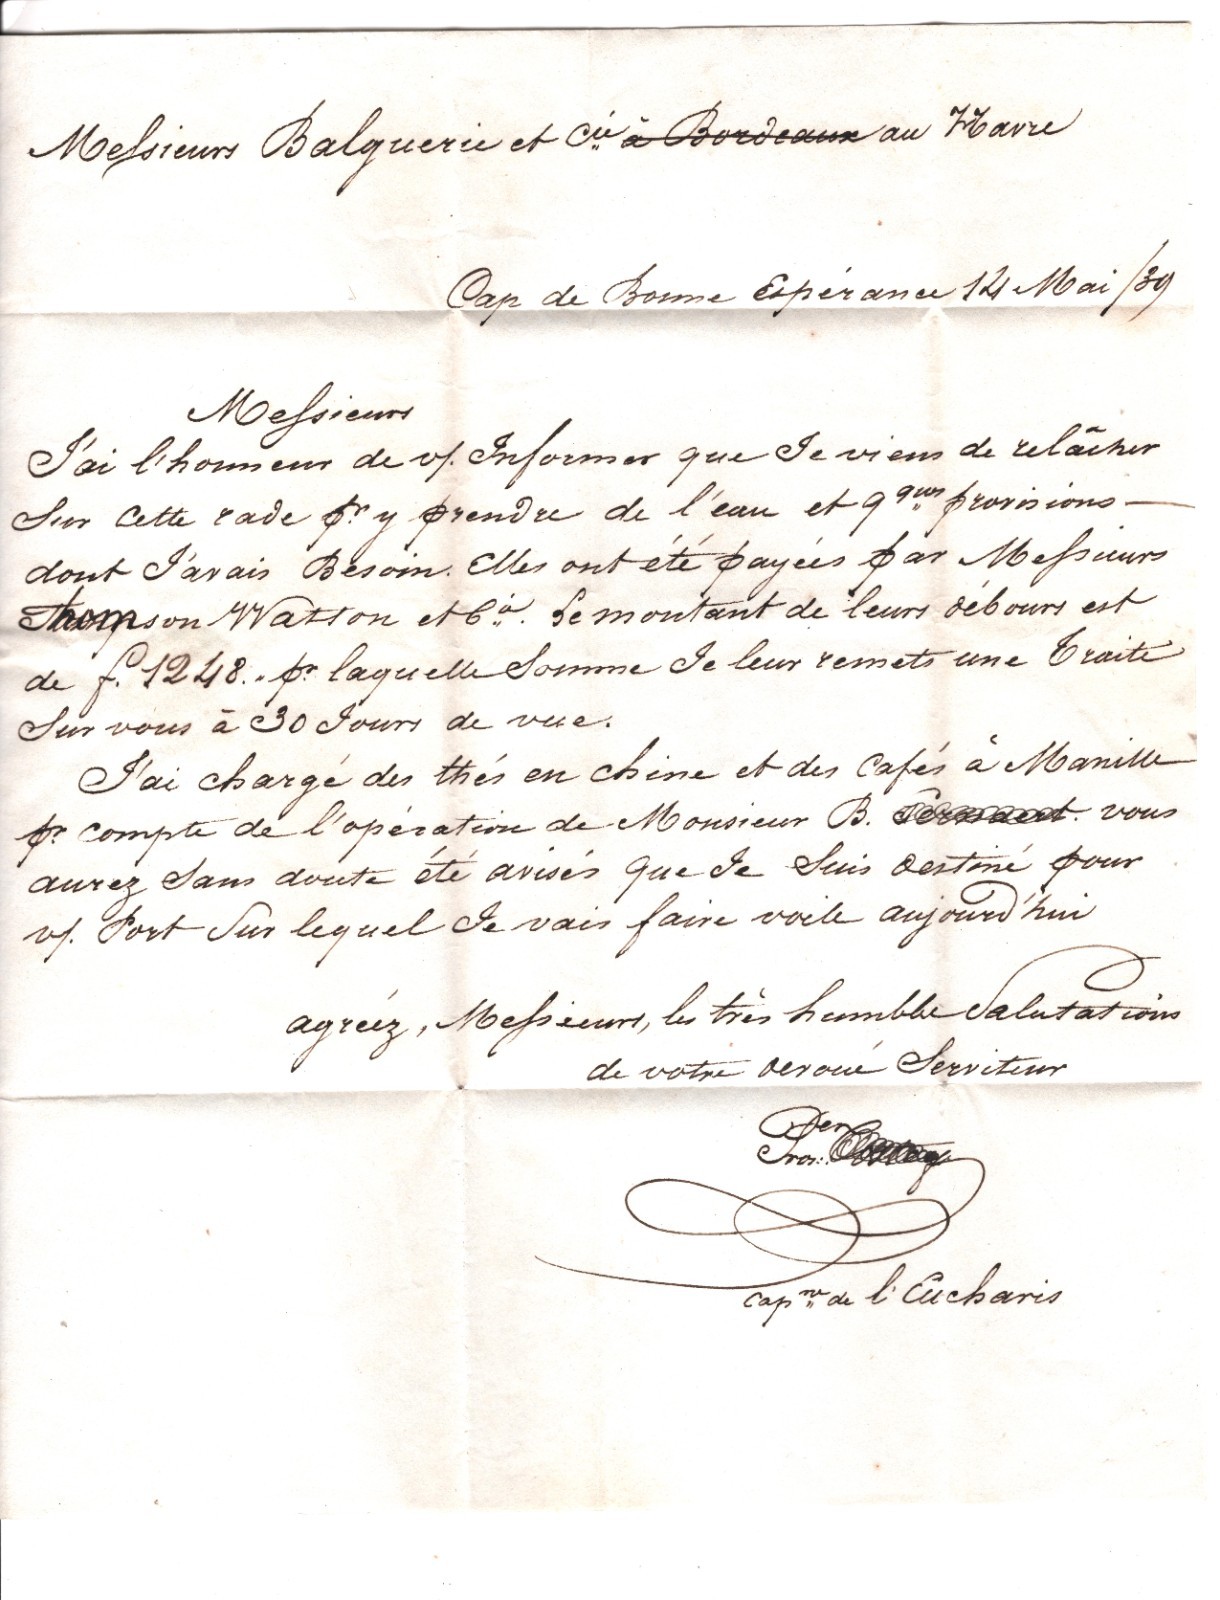 Messieurs Balguerie et Cie à Bordeaux au Havre
Cap de Bonne Espérance 14 Mai /39
Messieurs
J'ai l'honneur de v/. Informer que Je viens de relâcher
Sur cette rade pr. y prendre de l'eau et qques provisions —
dont J'avais Besoin. Elles ont été payées par Messieurs
Thompson Watson et Co. Le montant de leurs débours est
de f. 1248.. pr. laquelle Somme Je leur remets une Traite
Sur vous à 30 Jours de vue.
J'ai chargé des thés en chine et des cafés à Manille
pr. compte de l'opération de Monsieur B. vous
aurez Sans doute été avisés que Je Suis destiné pour
v/. Port Sur lequel Je vais faire voile aujourd'hui
agréez, Messieurs, les très humble Salutations
de votre dévoué Serviteur
capne de l'Eucharis